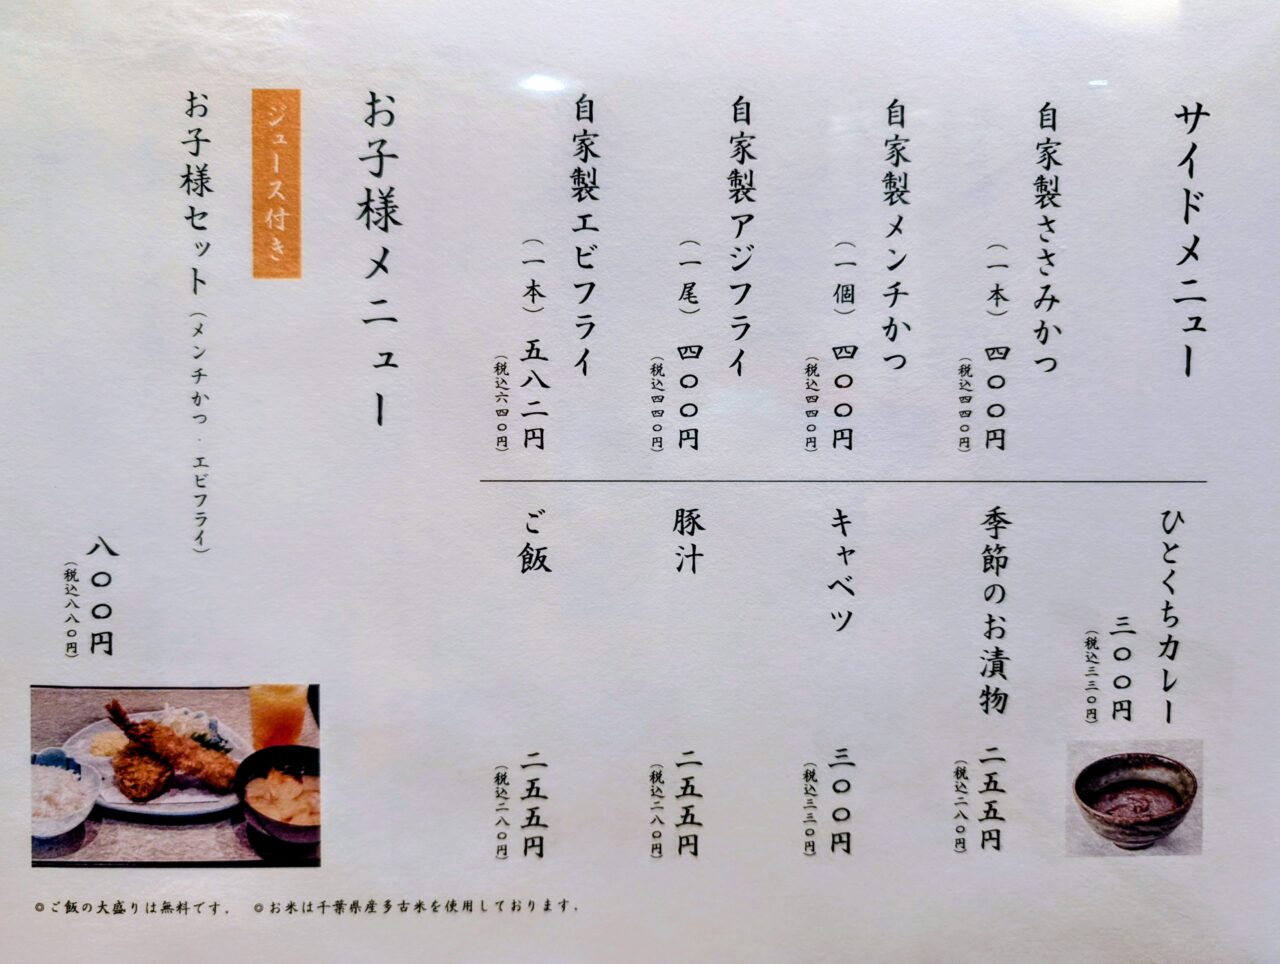 サイドメニュー
自家製ささみかつ
（一本）四〇〇円
（税込四四〇円）
自家製メンチかつ
（一個）四〇〇円
（税込四四〇円）
自家製アジフライ
（一尾）四〇〇円
（税込四四〇円）
自家製エビフライ
（一本）五八二円
（税込六四〇円）
ひとくちカレー
三〇〇円
（税込三三〇円）
季節のお漬物
二五五円
（税込二八〇円）
キャベツ
三〇〇円
（税込三三〇円）
豚汁
二五五円
（税込二八〇円）
ご飯
二五五円
（税込二八〇円）
お子様メニュー
ジュース付き
お子様セット（メンチかつ・エビフライ）
八〇〇円
（税込八八〇円）
◎ご飯の大盛りは無料です。 ◎お米は千葉県産多古米を使用しております。